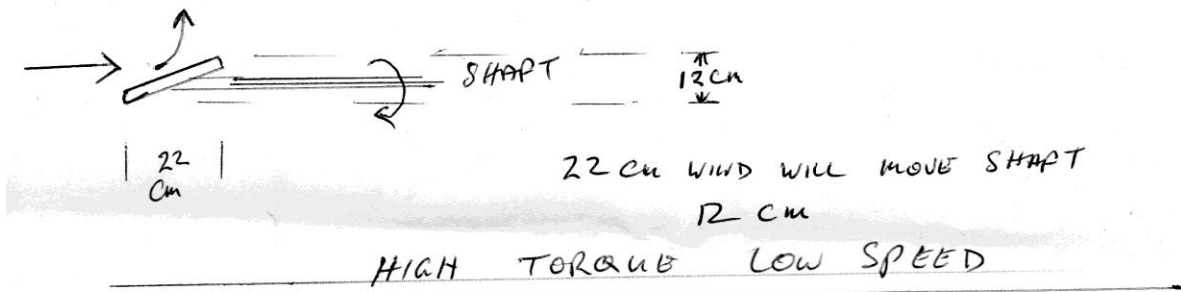 SHAFT
12cm
22
Cm
22 cm WIND WILL MOVE SHAFT
12 cm
HIGH TORQUE LOW SPEED